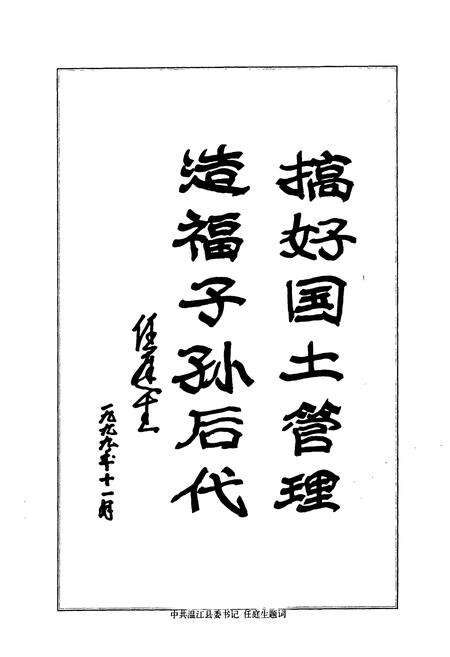 搞好国土管理
造福子孙后代
任庭生
一九九九年十一月
中共温江县委书记 任庭生题词